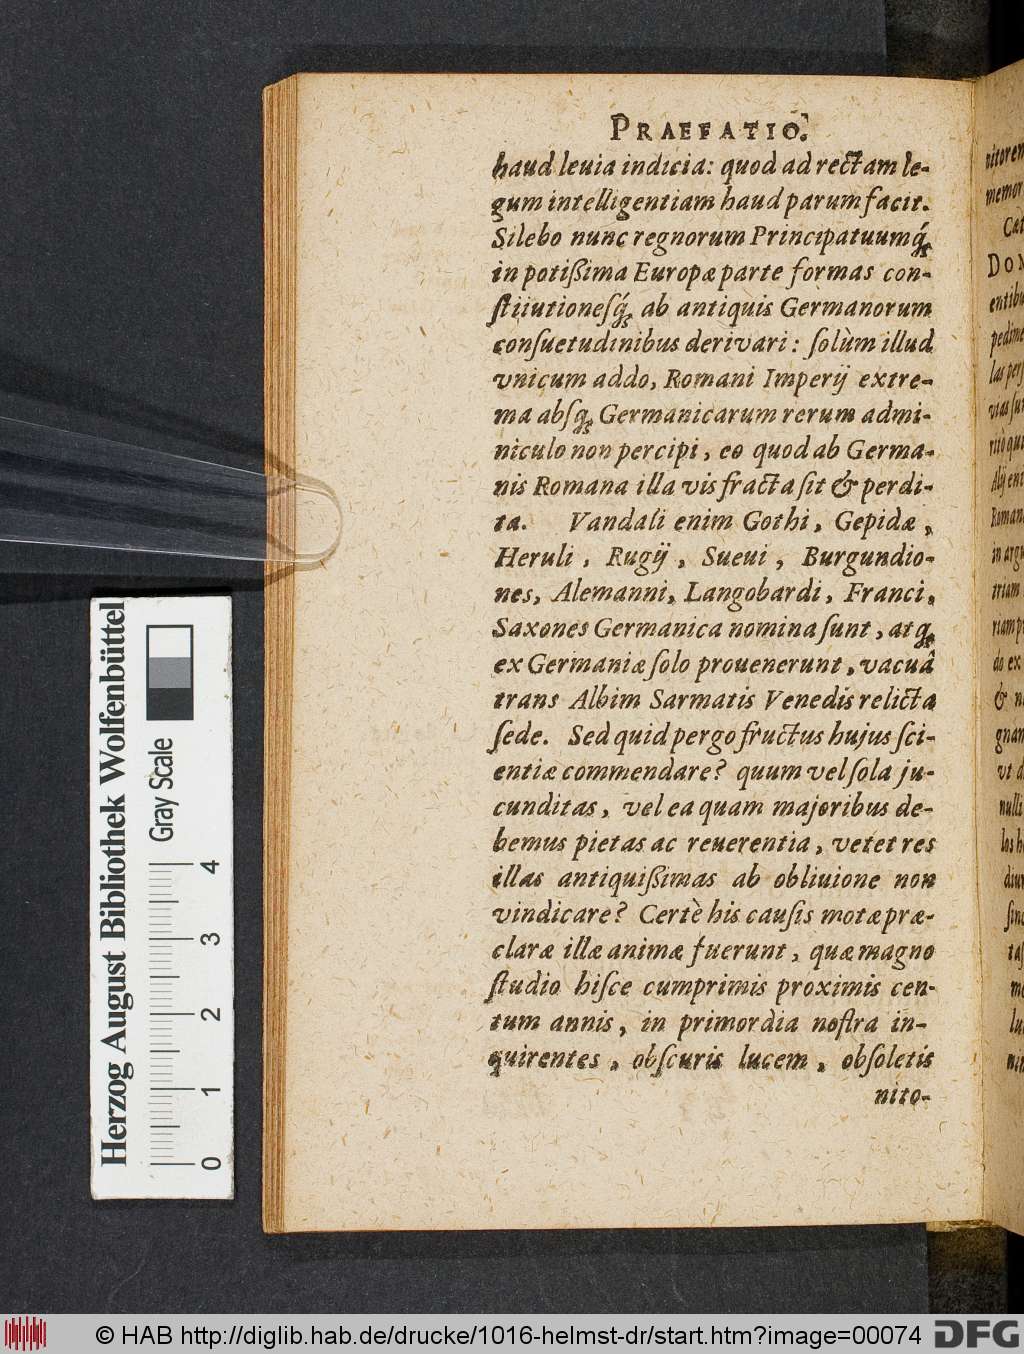 PRAEFATIO.
haud leuia indicia: quod ad rectam le-
gum intelligentiam haud parum facit.
Silebo nunc regnorum Principatuumq́;
in potißima Europæ parte formas con-
ſtiiutioneſq́; ab antiquis Germanorum
conſuetudinibus derivari: ſolùm illud
vnicum addo, Romani Imperij extre-
ma abſq; Germanicarum rerum admi-
niculo non percipi, eo quod ab Germa-
nis Romana illa vis fracta ſit & perdi-
ta. Vandali enim Gothi, Gepidæ,
Heruli, Rugij, Sueui, Burgundio-
nes, Alemanni, Langobardi, Franci,
Saxones Germanica nomina ſunt, atq;
ex Germaniæ ſolo prouenerunt, vacuâ
trans Albim Sarmatis Venedis relicta
ſede. Sed quid pergo fructus hujus ſci-
entiæ commendare? quum vel ſola ju-
cunditas, vel ea quam majoribus de-
bemus pietas ac reuerentia, vetet res
illas antiquißimas ab obliuione non
vindicare? Certè his cauſis motæ præ-
claræ illæ animæ fuerunt, quæ magno
ſtudio hiſce cumprimis proximis cen-
tum annis, in primordia noſtra in-
quirentes, obſcuris lucem, obſoletis
nito-
Herzog August Bibliothek Wolfenbüttel
Gray Scale
0 1 2 3 4
© HAB http://diglib.hab.de/drucke/1016-helmst-dr/start.htm?image=00074
DFG